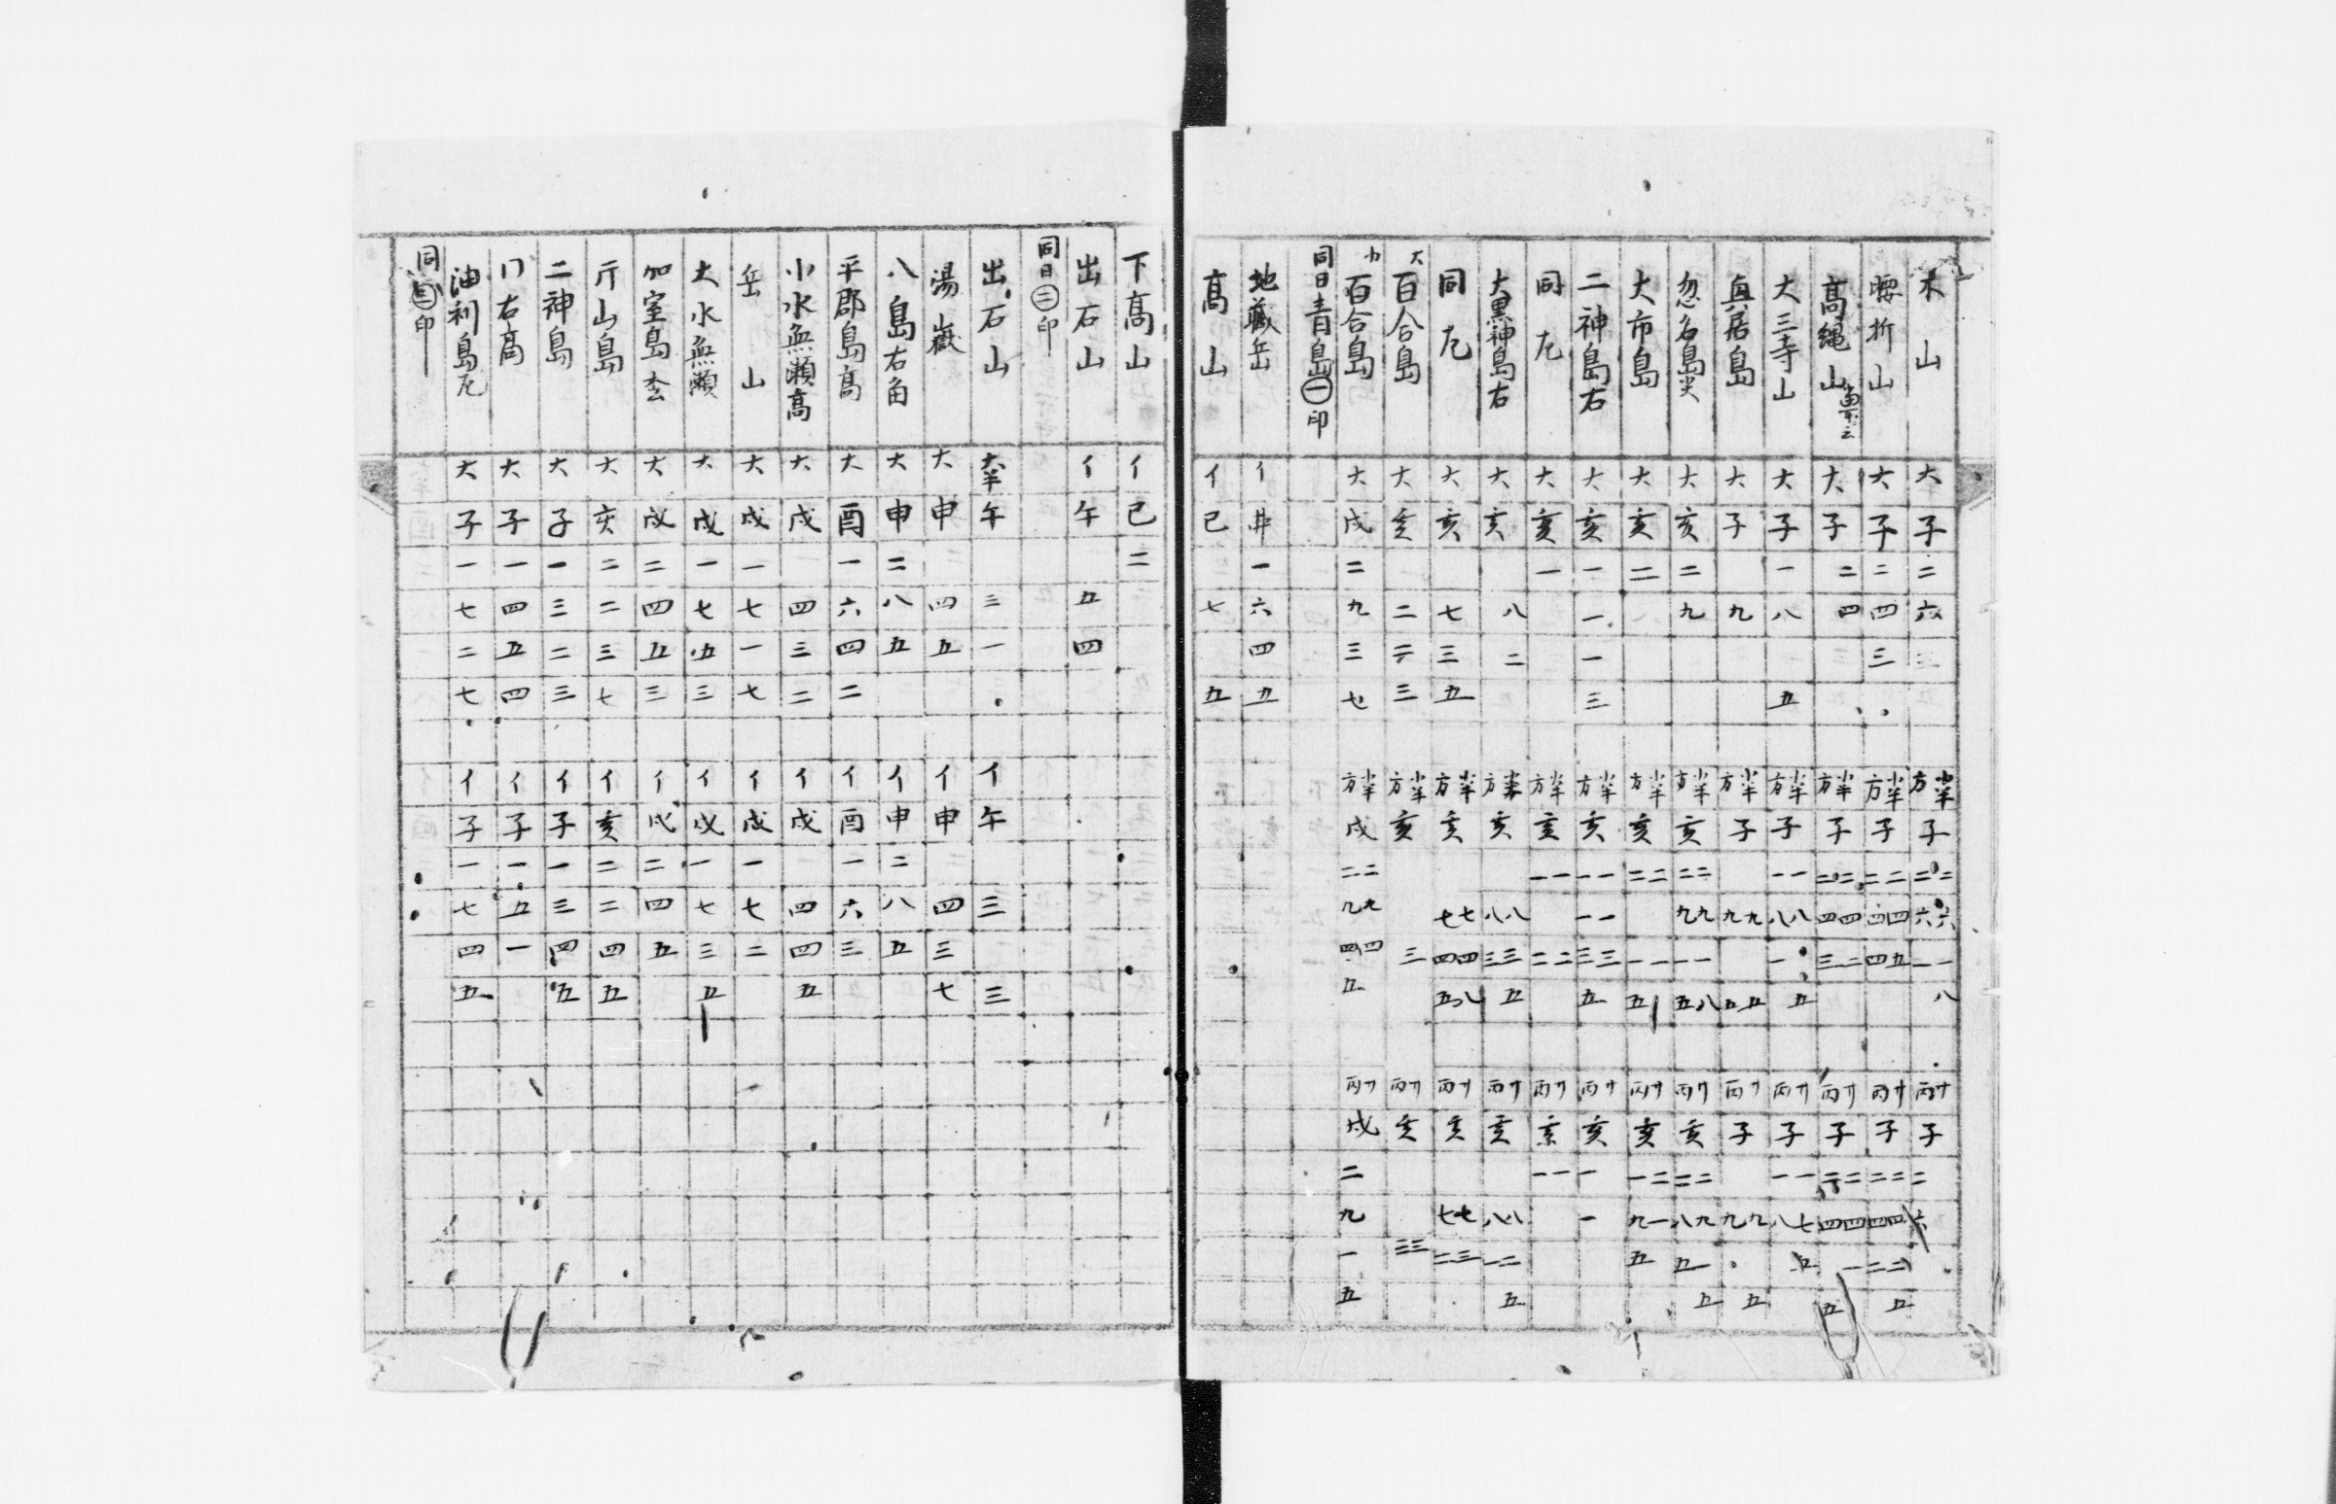 木山 大子二六 半方子二二六六一一八 丙子二六
腰折山 大子二四三 半方子二二四四四五 丙子二二四四二二五
高縄山 大子二四 半方子二二四四三二 丙子二二四四一五
大三寺山 大子一八 五 半方子一一八八一五 丙子一一八七五
奥居島 大子 九 半方子九九五五 丙子九九五
忽名島尖 大亥二九 半方亥二二九九一一五八 丙亥二二八九五一五
大市島 大亥二 半方亥二二一一五 丙亥一二九一五
二神島右 大亥一一一三 半方亥一一一一三三五 丙亥一一
同左 大亥一 半方亥一一二二 丙亥一一
大黒神島右 大亥 八二 半方亥八八三三五 丙亥八八一二五
同左 大亥 七三五 半方亥七七四四五八 丙亥七七二三
大百合島 大亥 二二三 半方亥 三 丙亥三三
小百合島 大戌二九三七 半方戌二二九九四四五 丙戌二九一五
同日青島㊀印
地蔵岳 イ井一六四五
高山 イ巳 七 五
下高山 イ巳二
出石山 イ午 五四
同日㊁印
出石山 大半午 三一 イ午 三 三
湯嶽 大申 四五 イ申 四三七
八島右角 大申二八五 イ申二八五
平郡島高 大酉一六四二 イ酉一六三
小水無瀬高 大戌 四三二 イ戌 四四五
岳山 大戌一七一七 イ戌一七二
大水無瀬 大戌一七五三 イ戌一七三五
加室島 大戌二四五三 イ戌二四五
斤山島 大亥二二三七 イ亥二二四五
二神島 大子一三二三 イ子一三四五
右高 大子一四五四 イ子一五一
油利島左 大子一七二七 イ子一七四五
同㊂印